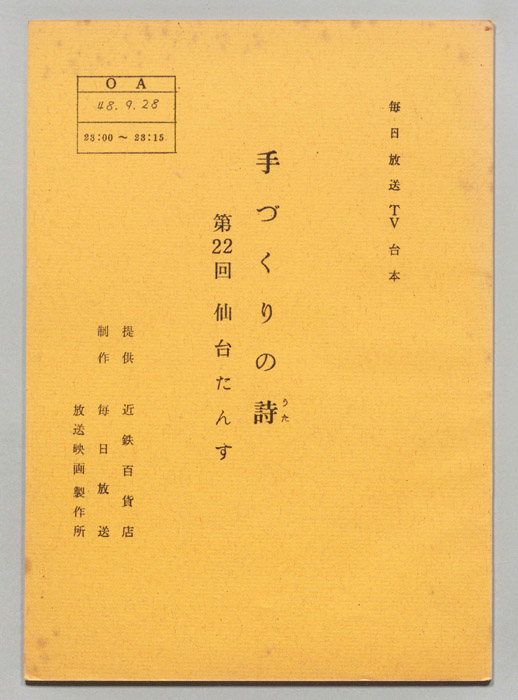 毎日放送TV台本
手づくりの詩
うた
第22回 仙台たんす
OA
48.9.28
23:00～23:15
提供 近鉄百貨店
制作 毎日放送
放送映画製作所